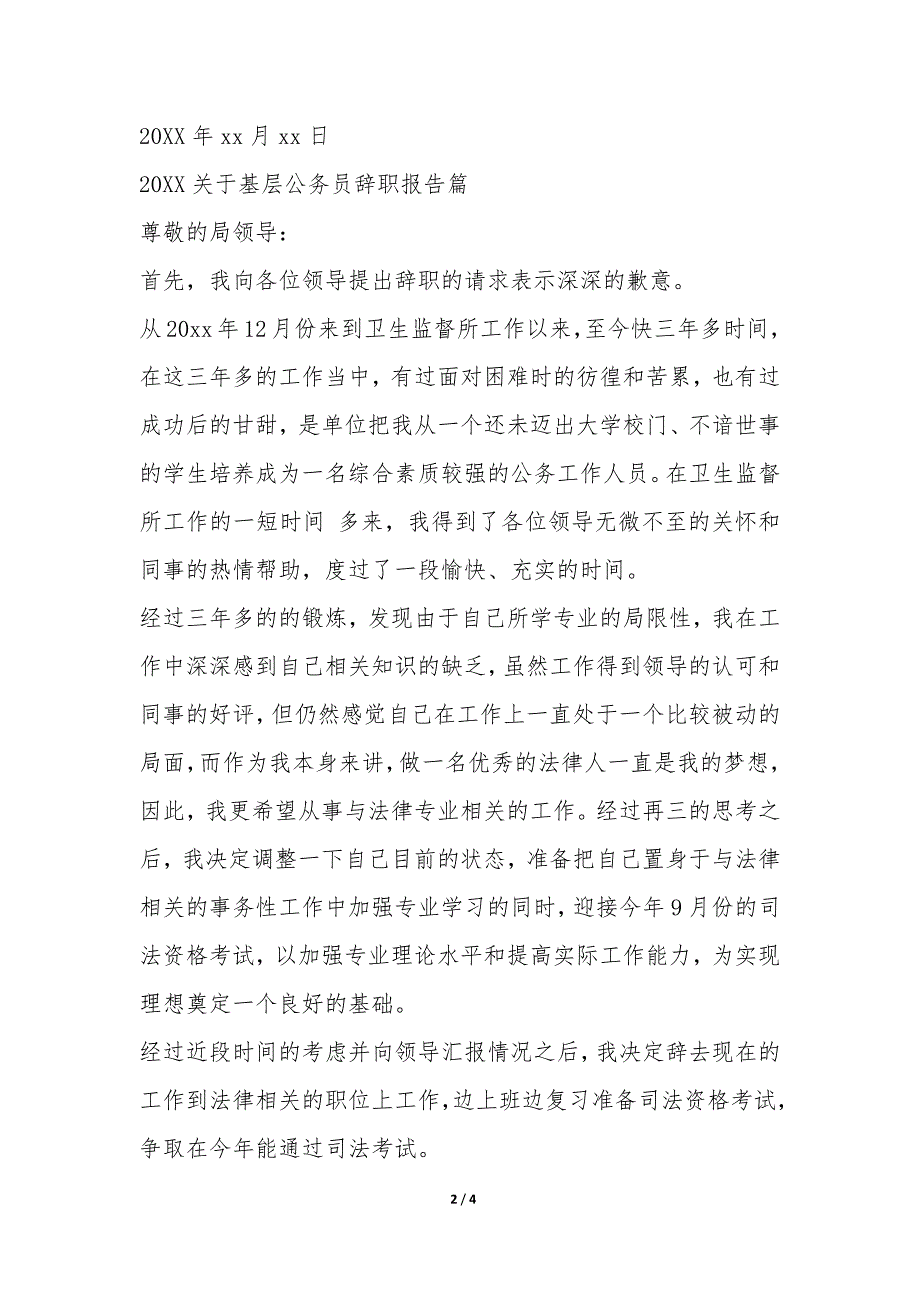 20XX 年 xx 月 xx 日
20XX 关于基层公务员辞职报告篇
尊敬的局领导：
首先，我向各位领导提出辞职的请求表示深深的歉意。
从 20xx 年 12 月份来到卫生监督所工作以来，至今快三年多时间，
在这三年多的工作当中，有过面对困难时的彷徨和苦累，也有过
成功后的甘甜，是单位把我从一个还未迈出大学校门、不谙世事
的学生培养成为一名综合素质较强的公务工作人员。在卫生监督
所工作的一短时间 多来，我得到了各位领导无微不至的关怀和
同事的热情帮助，度过了一段愉快、充实的时间。
经过三年多的的锻炼，发现由于自己所学专业的局限性，我在工
作中深深感到自己相关知识的缺乏，虽然工作得到领导的认可和
同事的好评，但仍然感觉自己在工作上一直处于一个比较被动的
局面，而作为我本身来讲，做一名优秀的法律人一直是我的梦想，
因此，我更希望从事与法律专业相关的工作。经过再三的思考之
后，我决定调整一下自己目前的状态，准备把自己置身于与法律
相关的事务性工作中加强专业学习的同时，迎接今年 9 月份的司
法资格考试，以加强专业理论水平和提高实际工作能力，为实现
理想奠定一个良好的基础。
经过近段时间的考虑并向领导汇报情况之后，我决定辞去现在的
工作到法律相关的职位上工作，边上班边复习准备司法资格考试，
争取在今年能通过司法考试。
2 / 4